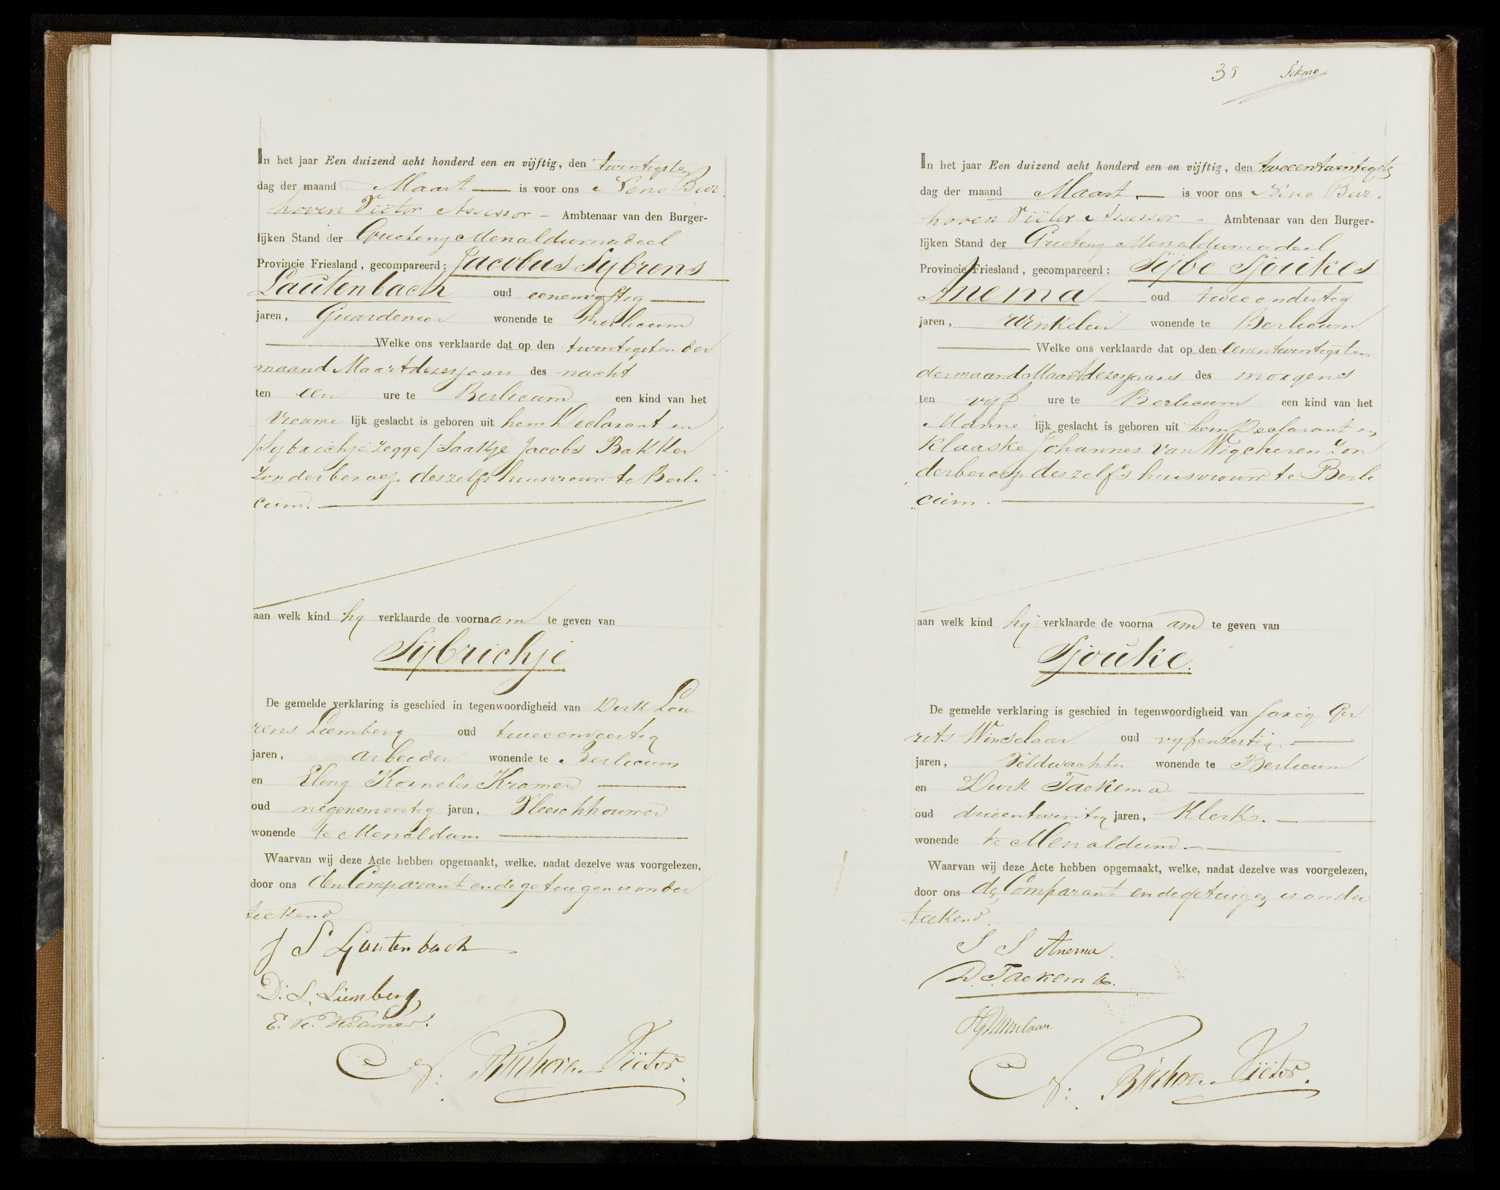 In het jaar Een duizend acht honderd een en vijftig, den twintigsten
dag der maand Maart is voor ons Nene Bur
hoven Viëtor Assessor Ambtenaar van den Burger-
lijken Stand der Grieteny Menaldumadeel
Provincie Friesland, gecompareerd: Jacobus Sybrens
Lautenbach oud eenenvyftig
jaren, Guardenier wonende te Berlicum
Welke ons verklaarde dat op den twintigsten der
maand Maart dezes jaars des nacht
ten een ure te Berlicum een kind van het
Vrouwe lijk geslacht is geboren uit hem Declarant en
Sybrichje zegge / Saakje Jacobs Bakker
zonder beroep deszelfs huisvrouw te Berli
cum.
aan welk kind hy verklaarde de voornaam te geven van
Sijbrichje
De gemelde verklaring is geschied in tegenwoordigheid van Dirk Lou
rens Liemberg oud tweeenveertig
jaren, arbeider wonende te Berlicum
en Elling Kornelis Kramer
oud negenenveertig jaren, Vleeschhouwer
wonende te Menaldum
Waarvan wij deze Acte hebben opgemaakt, welke, nadat dezelve was voorgelezen,
door ons den Comparant en de getuigen is onder
teekend
J S Lautenbach
D. L. Liemberg
E. K. Kramer.
N. Burhoven Viëtor.
39
In het jaar Een duizend acht honderd een en vijftig, den tweeentwintigsten
dag der maand Maart is voor ons Nene Bur
hoven Viëtor Assessor Ambtenaar van den Burger-
lijken Stand der Grieteny Menaldumadeel
Provincie Friesland, gecompareerd: Sijbe Sjoukes
Anema oud tweeendertig
jaren, Winkelier wonende te Berlicum
Welke ons verklaarde dat op den eenentwintigsten
der maand Maart dezes jaars des morgens
ten vyf ure te Berlicum een kind van het
Manne lijk geslacht is geboren uit hem Declarant en
Klaaske Johannes van Wigcheren zon
der beroep deszelfs huisvrouw te Berli
cum.
aan welk kind hij verklaarde de voornaam te geven van
Sjouke.
De gemelde verklaring is geschied in tegenwoordigheid van Jarig Ger
rits Winselaar oud vyfenzestig
jaren, Veldwachter wonende te Berlicum
en Durk Tackema
oud drieentwintig jaren, Klerk.
wonende te Menaldum
Waarvan wij deze Acte hebben opgemaakt, welke, nadat dezelve was voorgelezen,
door ons de Comparant en de getuigen is onder
teekend
S S Anema.
D. Tackema.
JGWinselaar
N. Burhoven Viëtor.